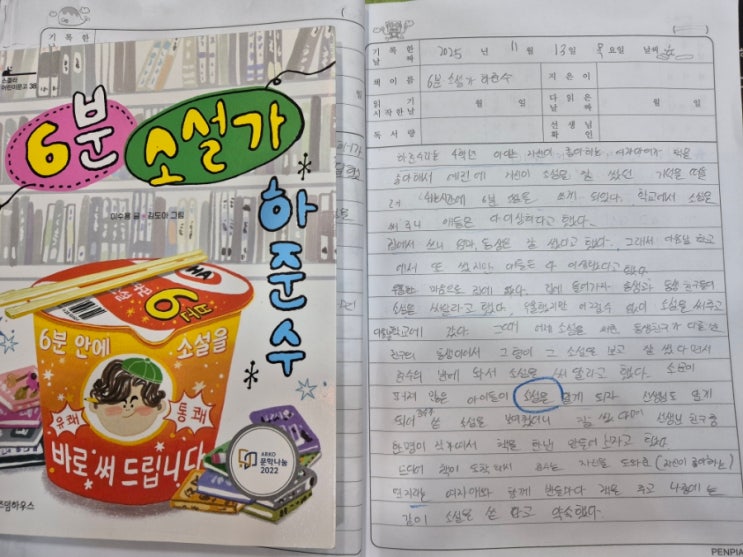 기록한
스콜라
어린이문고 38
6분
소설가
하준수
이수용 글 · 김도아 그림
6분
6분 안에
소설을
유쾌
통쾌
바로 써 드립니다
ARKO
문학나눔
2022
즈덤하우스
기록한 날짜 2025 년 11 월 13 일 목요일 날씨
책이름 6분 소설가 하준수 지은이
읽기 시작한 날 월 일 다 읽은 날짜 월 일
독서량 선생님 확인
하준수라는 4학년 아이는 자신이 좋아하는 여자아이가 책을
좋아해서 예전에 자신이 소설을 잘 썼던 기억을 떠올
려 쉬는시간에 6분 소설을 쓰게 되었다. 학교에서 소설을
써 주니 애들은 다 이상하다고 했다.
집에서 쓰니 엄마, 동생은 잘 썼다고 했다. 그래서 다음날 학교
에서 또 썼지만 아이들은 다 이상하다고 했다.
우울한 마음으로 집에 왔다. 집에 들어가자 동생과 동생 친구들이
소설을 써달라고 했다. 우울했지만 어쩔수 없이 소설을 써주고
다음날 학교에 갔다. 그런데 어제 소설을 써준 동생친구가 다를
친구의 동생이어서 그 형이 그 소설을 보고 잘 썼다면서
준수의 반에 와서 소설을 써 달라고 했다. 소문이
퍼져 많은 아이들이 소설을 알게 되자 선생님도 알게
되어 준수가 쓴 소설을 보여줬더니 잘 썼다며 선생님 친구중
한명이 작가여서 책을 하나 만들어 준다고 했다.
드디어 책이 도착해서 준수는 자신을 도와준 (자신이 좋아하는)
여자애와 함께 반마다 책을 주고 나중에는
같이 소설을 쓴다고 약속했다.
PENPIA